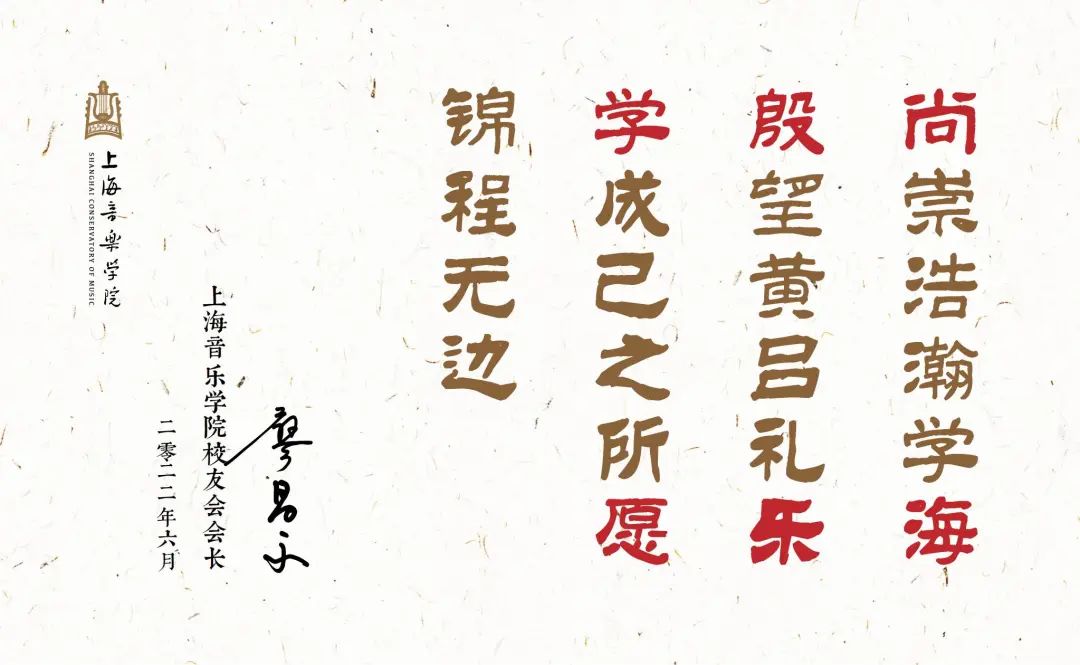 尚崇浩瀚学海
殷望黄吕礼乐
学成己之所愿
锦程无边
廖昌永
上海音乐学院校友会会长
二零二二年六月
上海音樂学院
SHANGHAI CONSERVATORY OF MUSIC